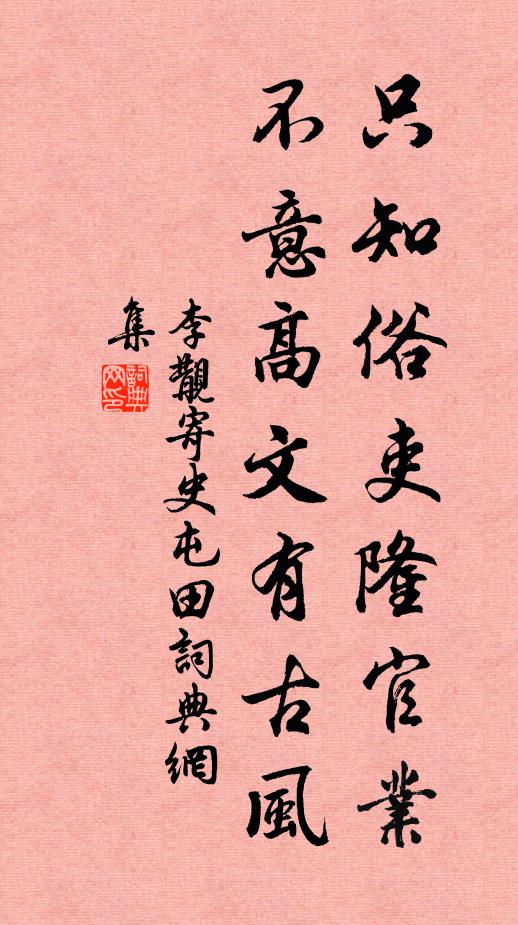 只知俗吏隆官業
不意高文有古風
李覯寄史屯田詞典網
集
詞典網印